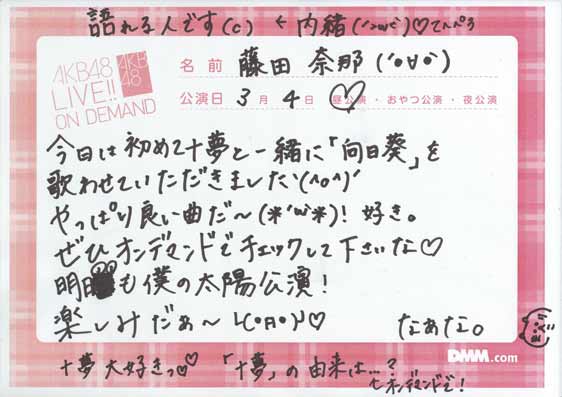 語れる人です(c) ← 内緒(´>ω<`)♡てへぺろ
AKB48
LIVE!!
ON DEMAND
AKB
48
名前 藤田 奈那(´●∀●`)
公演日 3月4日 昼公演・おやつ公演・夜公演
今日は初めて十夢と一緒に「向日葵」を
歌わせていただきました\(^o^)/
やっぱり良い曲だ～(*´ω`*)!好き。
ぜひオンデマンドでチェックして下さいな♡
明日も僕の太陽公演!
楽しみだぁ～ ♡
なぁな。
DMM.com
十夢大好きっ♡♡ 「十夢」の由来は…?
オンデマンドで!